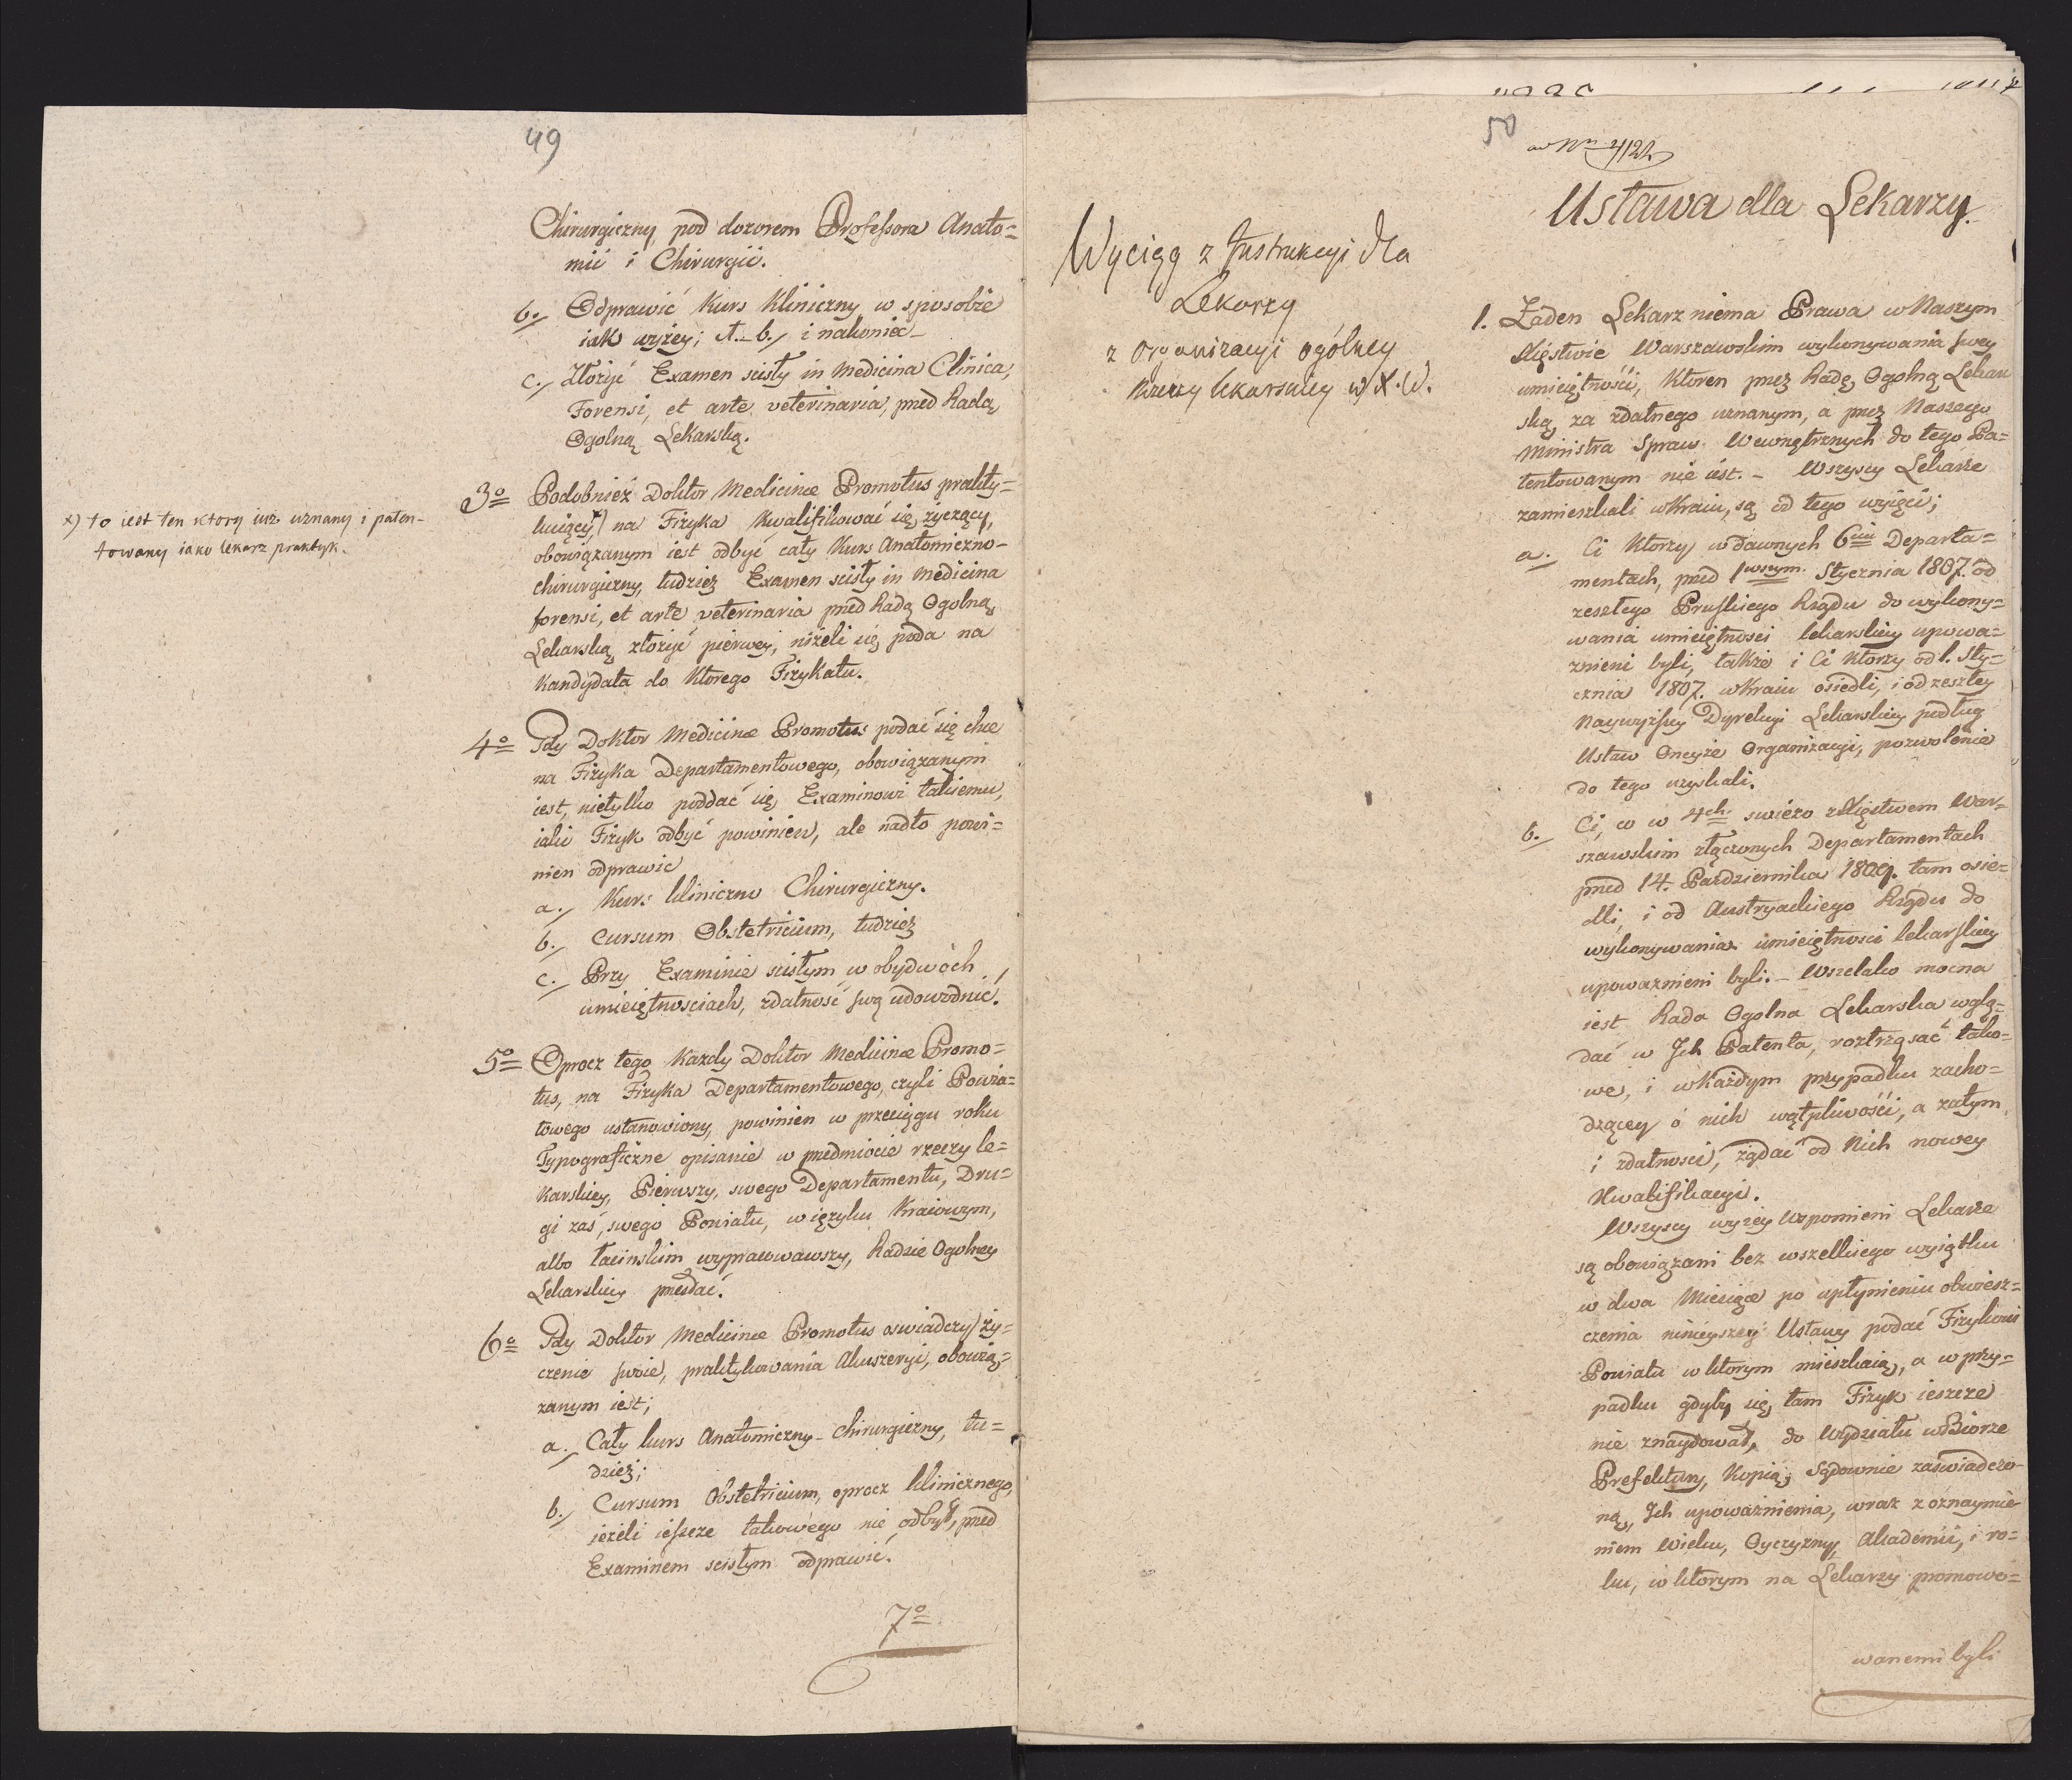 49
Chirurgiczny, pod dozorem Professora Anato=
mii i Chirurgii.
b./ Odprawić Kurs Kliniczny w sposobie
iak wyżey; A.– b./ i nakoniec –
c./ Złożyć Examen scisły in Medicina Clinica,
Forensi, et arte veterinaria, przed Radą
Ogolną Lekarską.
3º Podobnież Doktor Medicinæ Promotus prakty=
kuiący x) na Fizyka Kwalifikować się życzący,
obowiązanym iest odbyć cały Kurs Anatomiczno–
chirurgiczny, tudzież Examen scisły in Medicina
forensi, et arte veterinaria przed Radą Ogolną
Lekarską złożyć pierwey, niżeli się poda na
Kandydata do Ktorego Fizykatu.
x) to iest ten ktory iuż uznany i paten–
towany iako lekarz praktyk.
4º Gdy Doktor Medicinæ Promotus podać się chce
na Fizyka Departamentowego, obowiązanym
iest, nietylko poddać się Examinowi takiemu,
iaki Fizyk odbyć powinien, ale nadto powi=
nien odprawic
a./ Kurs kliniczno Chirurgiczny.
b./ Cursum Obstetricium, tudzież
c./ Przy Examinie scisłym w obydwóch
umieiętnosciach, zdatność swą udowodnić.
5º Oprocz tego Każdy Doktor Medicinæ Promo=
tus, na Fizyka Departamentowego, czyli Powia=
towego ustanowiony, powinien w przeciągu roku
Typograficzne opisanie w przedmiocie rzeczy le=
karskiey, Pierwszy, swego Departamentu, Dru=
gi zaś, swego Powiatu, w ięzyku Kraiowym,
albo łacinskim wypracowawszy, Radzie Ogolney
Lekarskiey przesłać.
6º Gdy Doktor Medicinæ Promotus oswiadczy ży=
czenie swoie, praktykowania Akuszeryi, obowią=
zanym iest;
a./ Cały kurs Anatomiczny–chirurgiczny, tu=
dzież;
b./ Cursum Obstetricium, oprocz klinicznego,
ieżeli ieszcze takowego nie odbył, przed
Examinem scisłym odprawić.
7º
50
Ustawa dla Lekarzy.
Wyciąg z Instrukcyi dla
Lekarzy
z Organizacyi ogólney
Rzeczy lekarskiey w X. W.
1. Żaden Lekarz niema Prawa w Naszym
Xięstwie Warszawskim wykonywania swey
umieiętności, Ktoren przez Radę Ogolną Lekar
ską za zdatnego uznanym, a przez Naszego
Ministra Spraw Wewnętrznych do tego Pa=
tentowanym nie iest. – Wszyscy Lekarze
zamieszkali w Kraiu, są od tego wyięci;
a./ Ci Ktorzy w dawnych 6ciu Departa=
mentach, przed 1wszym Stycznia 1807. od
zeszłego Pruskiego Rządu do wykony=
wania umieiętnosci lekarskiey upowa=
żnieni byli, także i Ci Ktorzy od 1. Sty=
cznia 1807. w Kraiu osiedli, i od zeszłey
Naywyższey Dyrekcyi Lekarskiey podług
Ustaw Oneyże Organizacyi, pozwolenie
do tego uzyskali.
b./ Ci, co w 4ch swieżo z Xięstwem War=
szawskim złączonych Departamentach
przed 14. Pazdziernika 1809. tam osie=
dli, i od Austryackiego Rządu do
wykonywania umieiętnosci lekarskiey
upoważnieni byli. – Wszelako mocna
iest Rada Ogolna Lekarska wglą=
dać w Ich Patenta, roztrząsać tako=
we, i w Każdym przypadku zacho=
dzącey o nich wątpliwości, a zatym
i zdatnosci, żądać od Nich nowey
Kwalifikacyi.
Wszyscy wyżey wspomieni Lekarze
są obowiązani bez wszelkiego wyiątku
w dwa Miesiące po upłynieniu obwiesz=
czenia ninieyszey Ustawy podać Fizykowi
Powiatu w ktorym mieszkaią, a w przy=
padku gdyby się tam Fizyk ieszcze
nie znaydował, do Wydziału w Biorze
Prefektury, Kopią Sądownie zaswiadczo–
ną, Ich upoważnienia, wraz z oznaymie
niem Wieku, Oyczyzny, Akademii, i ro=
ku, w ktorym na Lekarzy promowo=
wanemi byli